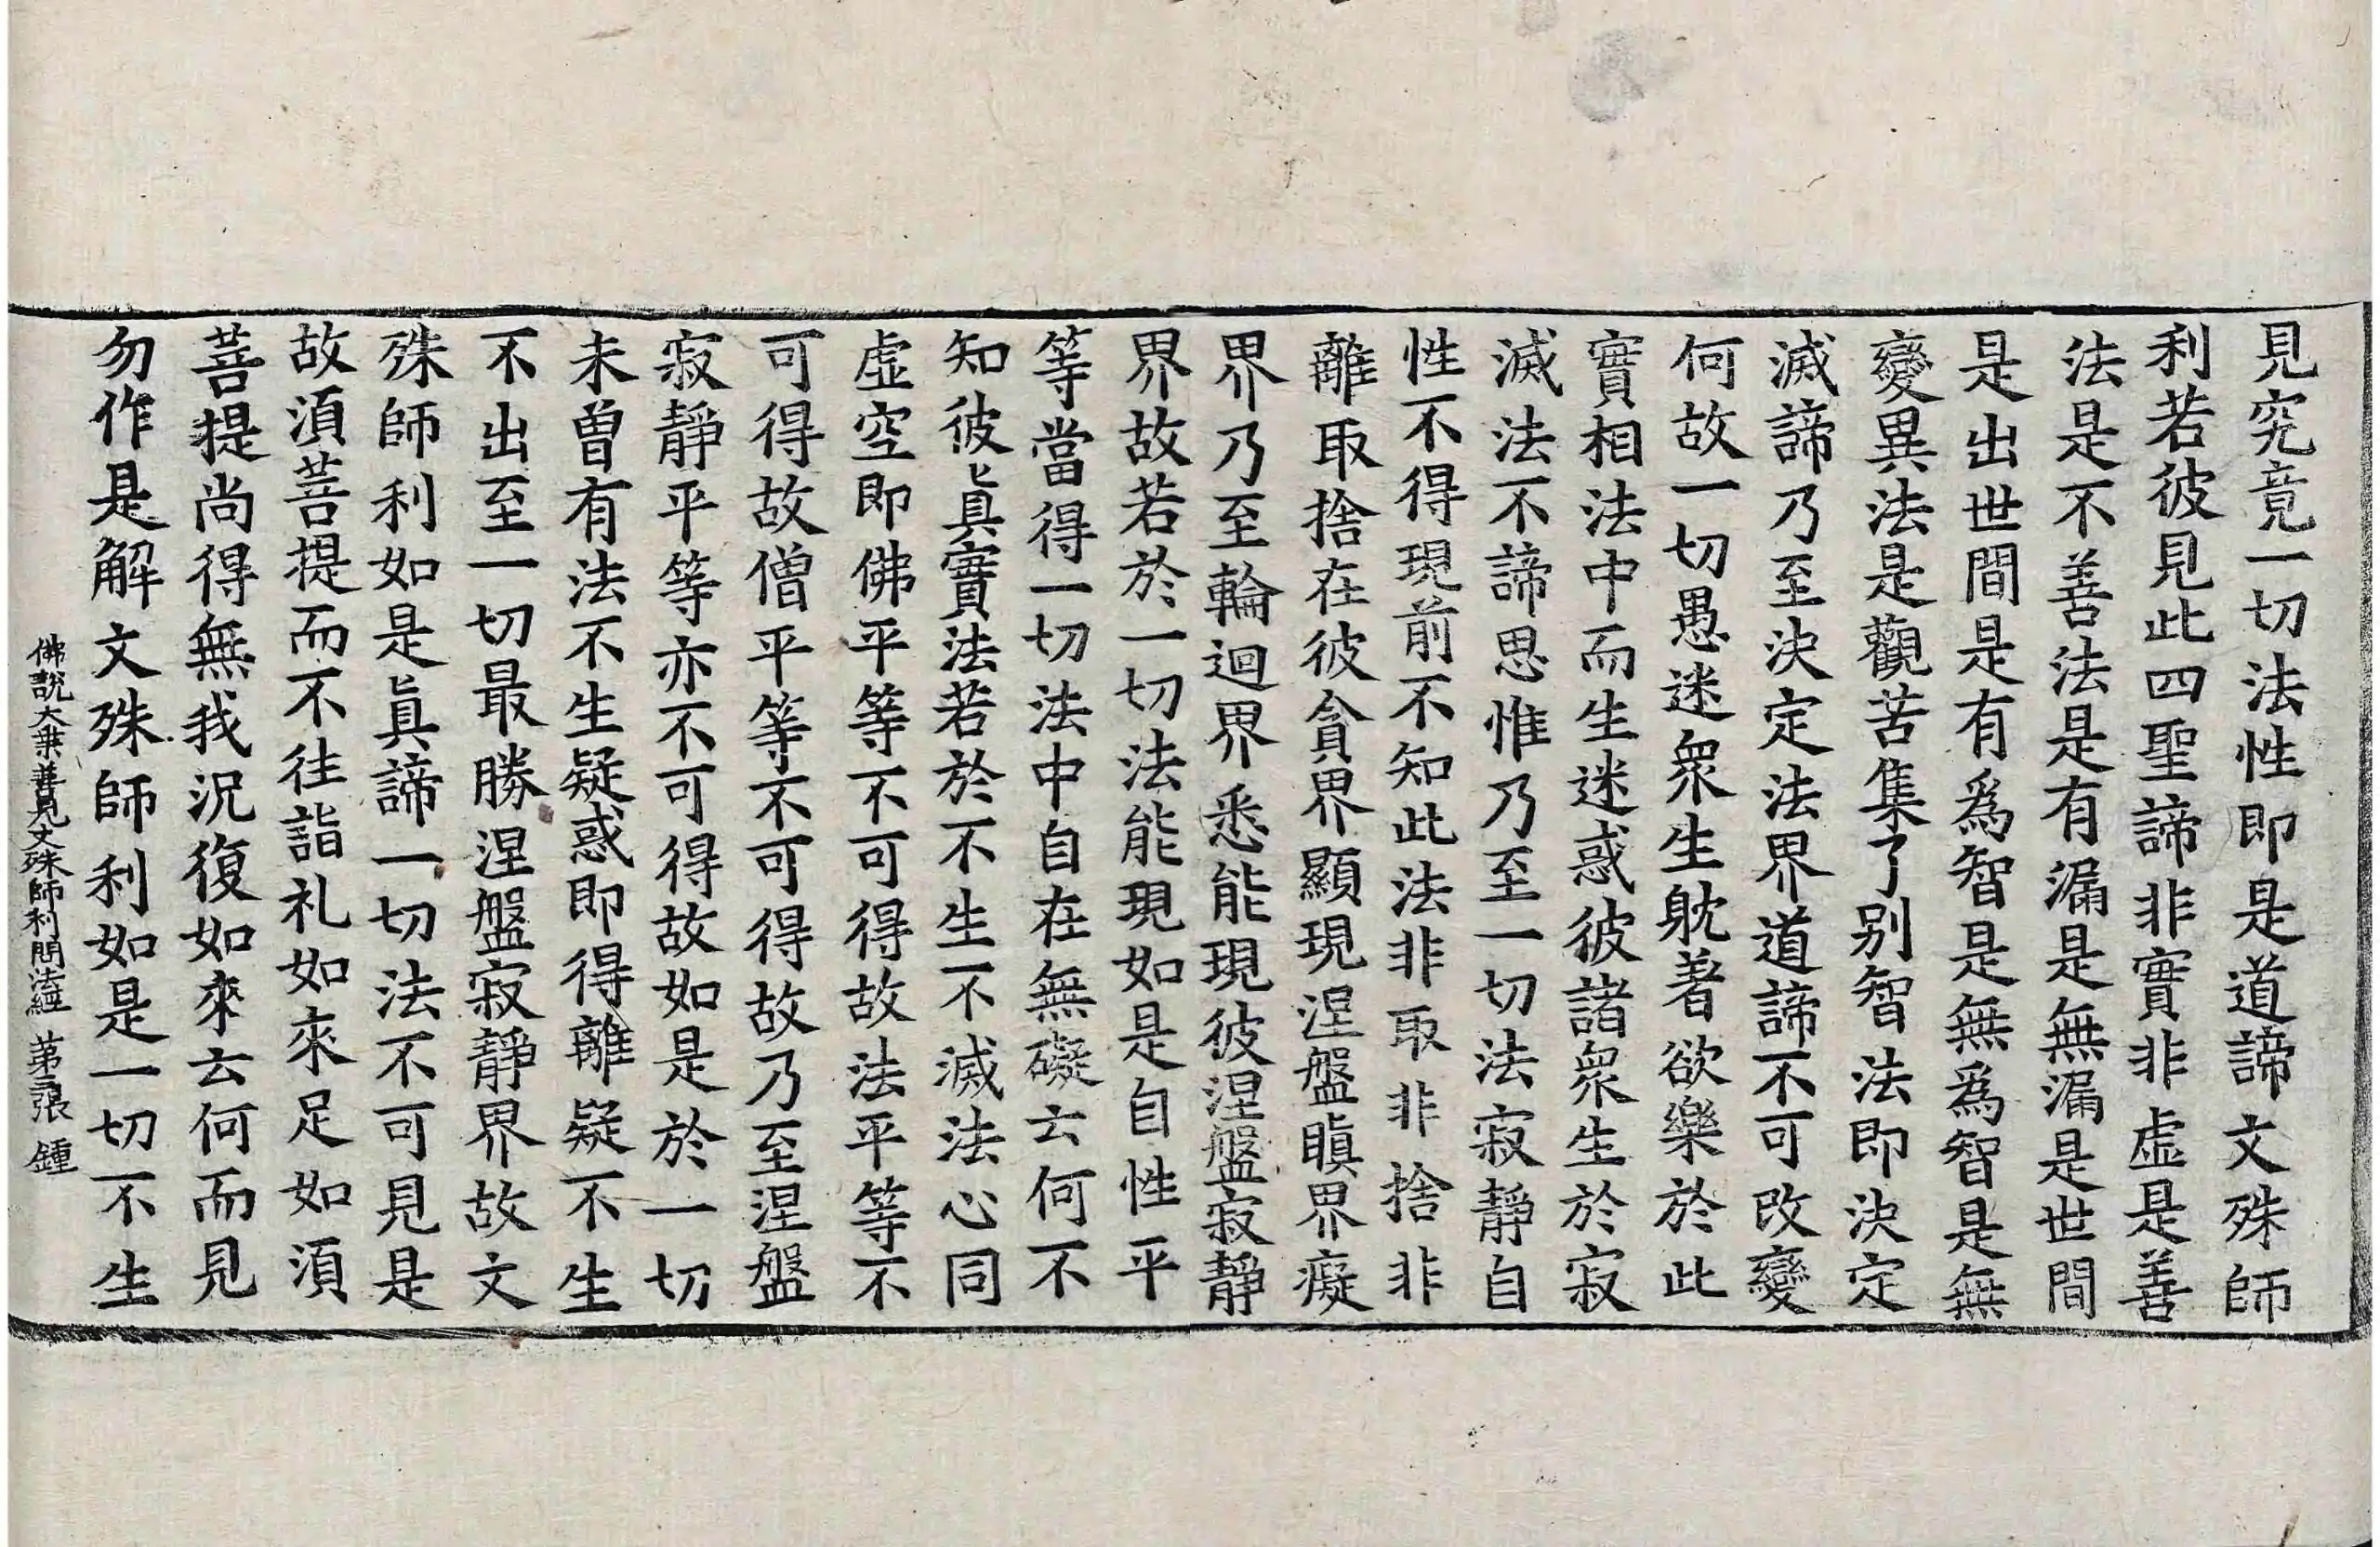 見究竟一切法性即是道諦文殊師
利若彼見此四聖諦非實非虛是善
法是不善法是有漏是無漏是世間
是出世間是有爲智是無爲智是無
變異法是觀苦集了别智法即決定
滅諦乃至決定法界道諦不可改變
何故一切愚迷衆生躭著欲樂於此
實相法中而生迷惑彼諸衆生於寂
滅法不諦思惟乃至一切法寂靜自
性不得現前不知此法非取非捨非
離取捨在彼貪界顯現涅盤瞋界癡
界乃至輪迴界悉能現彼涅盤寂靜
界故若於一切法能現如是自性平
等當得一切法中自在無礙云何不
知彼眞實法若於不生不滅法心同
虛空即佛平等不可得故法平等不
可得故僧平等不可得故乃至涅盤
寂靜平等亦不可得故如是於一切
未曾有法不生疑惑即得離疑不生
不出至一切最勝涅盤寂靜界故文
殊師利如是眞諦一切法不可見是
故湏菩提而不往詣礼如來足如湏
菩提尚得無我況復如來云何而見
勿作是解文殊師利如是一切不生
佛說大乘善見文殊師利問法經 第三張 鍾